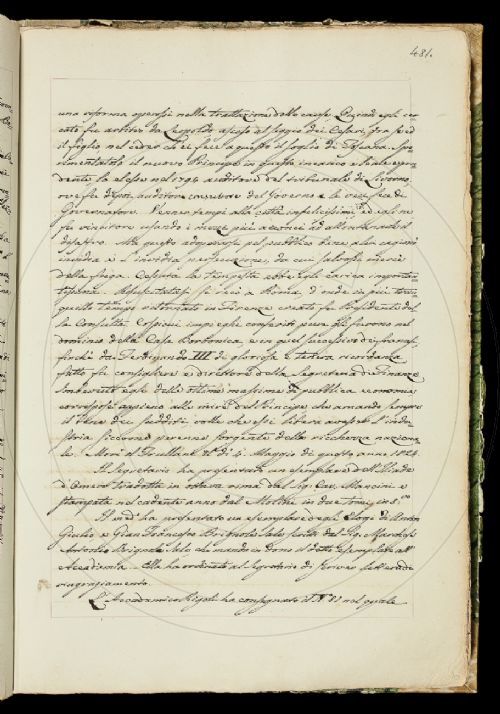 481.
una riforma operosi nella trattazione delle cause. Quindi egli cer
cato fu arbitro da Leopoldo asceso al soglio dei Cesari, fra sè ed
il figlio nel cedere ch'ei fece a questo il soglio di Toscana. Spe
rimentatolo il nuovo Principe in questo incarico e abile e pru
dente lo elesse nel 1794 auditore del tribunale di Livorno,
ove fu dipoi auditore consultore del Governo e le veci fece di
Governatore. Vennero tempi alla città infelicissimi, ed egli ne
fu vincitore usando i mezzi più acconci ad allontanare il
disastro. Ma questo adoperarsi pel pubblico bene alla cagionò
invidia e l'invidia persecuzione, da cui salvossi mercè
della fuga. Cessata la tempesta ebbe egli carica importan
tissima. Rifugiatosi si recò a Roma d'onde in più tran
quillo tempo ritornato in Firenze creato fu Presidente del
la Consulta. Cospicui impieghi conferiti pure gli furono nel
dominio della Casa Borbonica, e in quel successivo dei francesi
finchè da Ferdinando III di gloriosa e tenera ricordanza
fatto fu consigliere e direttore della Segreteria di Finanze.
Imbevuto egli delle ottime massime di pubblica economia
corrispose appieno alle mire del Principe che amando sempre
il bene dei sudditi volle che essi libera avessero l'indu
stria siccome perenne sorgente della ricchezza naziona
le. Morì il Frullini il dì 4. Maggio di questo anno 1824.
Il Segretario ha presentato un esemplare dell'Iliade
d'Omero tradotta in ottava rima dal Sig. Cav. Mancini e
stampata nel cadente anno dal Molini in due tomi in 8.vo
Il med.o ha presentato un esemplare degli Elogi di Anton
Giulio e Gian Francesco Brignole Sale scritti dal Sig. Marchese
Antonio Brignole Sale che manda in dono il detto esemplare all'
Accademia. Ella ha ordinato al Segretario di scriver lettera di
ringraziamento.
L'Accademico Rigoli ha consegnato il N.° 81 nel quale